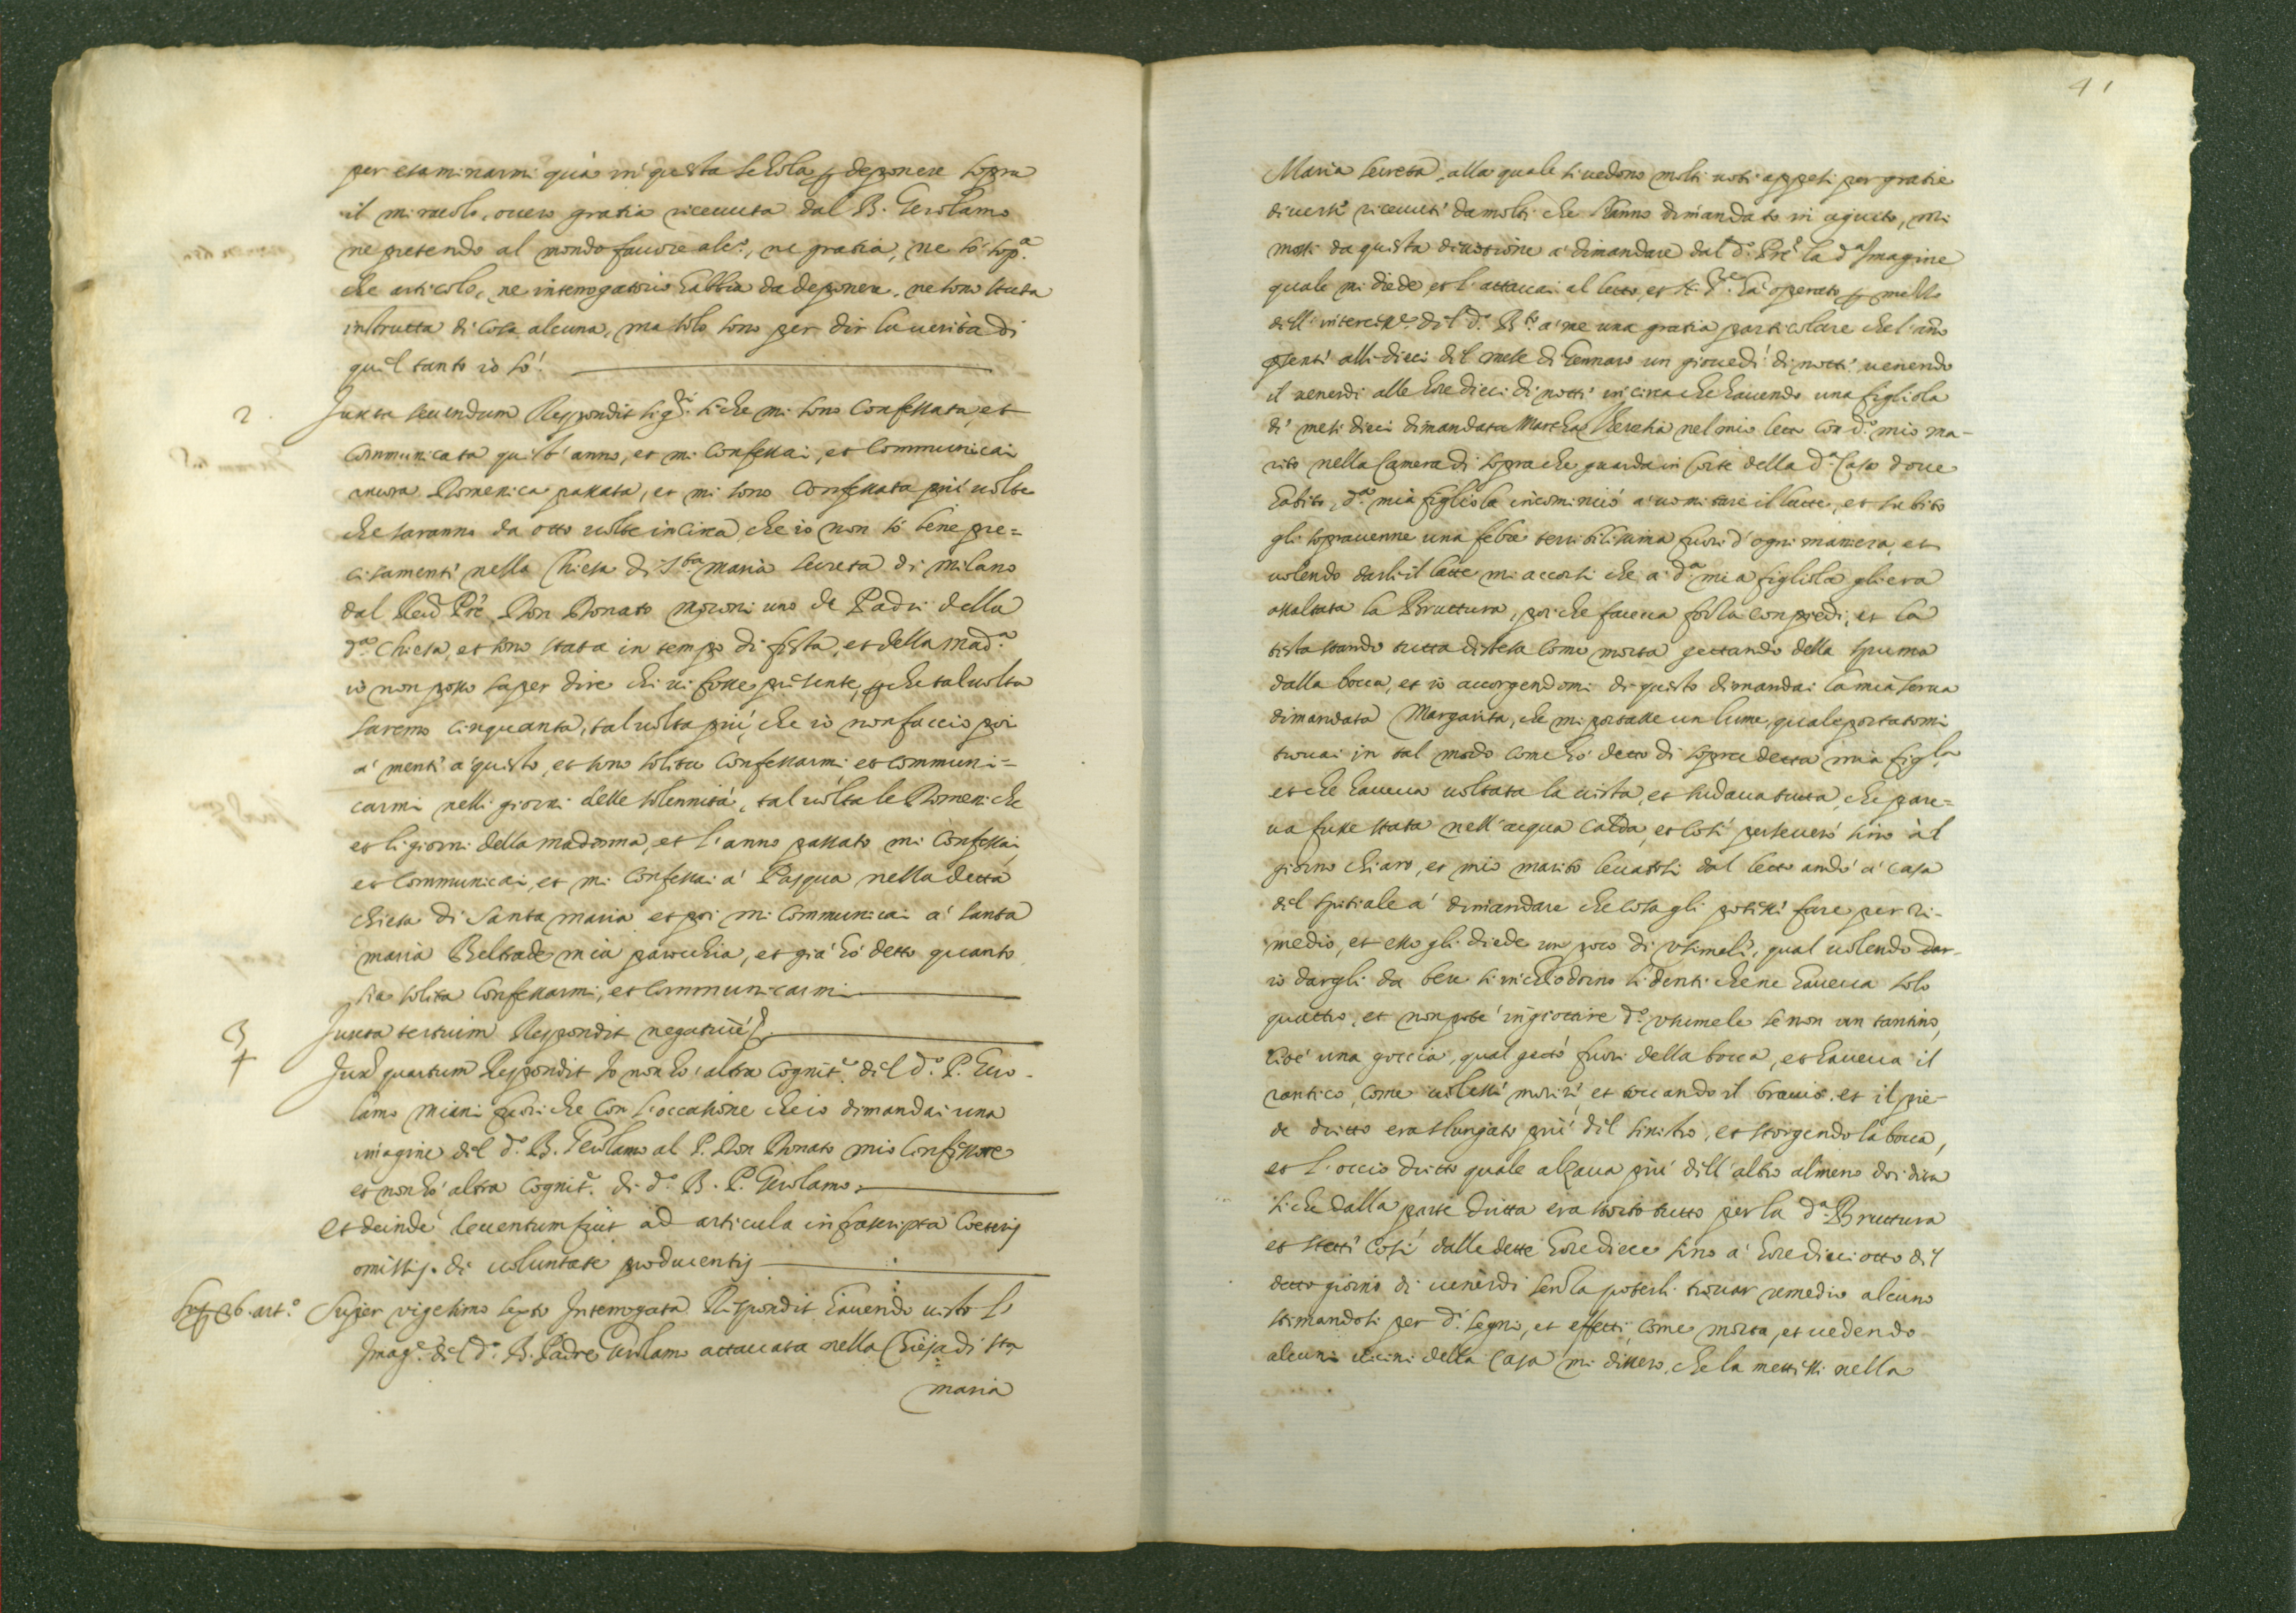 per esaminarmi quà in questa schola p deponere sopra
il miracolo, overo gratia ricevuta dal B. Gerolamo
ne pretendo al mondo favore alc.º, ne gratia, ne sò sop.ª
che articolo, ne interrogatorio habbia da deponere, ne sono stata
instrutta di cosa alcuna, ma solo sono per dir la verità di
quel tanto io sò.
2. Juxta secundum Respondit sig.ri si che mi sono confessata, et
communicata quest'anno, et mi confessai, et communicai
ancora Domenica passata, et mi sono confessata più volte
che saranno da otto volte in circa, che io non sò bene pre=
cisamente nella Chiesa di S.ta Maria secreta di Milano
dal Red Prê Don Donato Moroni uno de Padri della
d.ª Chiesa, et sono stata in tempo di festa, et della Mad.ª
io non posso saper dire chi vi fosse presente, p che tal volta
saremo cinquanta, tal volta più, che io non faccio poi
a' mente a' questo, et sono solita confessarmi et communi=
carmi nelli giorni delle solennità, tal volta le Domeniche
et li giorni della madonna, et l'anno passato mi confessai
et communicai, et mi confessai a' Pasqua nella detta
chiesa di Santa Maria et poi mi communicai a' santa
maria Beltrade mia parochia, et già hò detto quanto
sia solita confessarmi, et communicarmi
3 Juxta tertium Respondit negative
4 Juxª quartum Respondit Io non hò altra cognit.e del d.º P. Gero-
lamo Miani fuori che con l'occasione che io dimandai una
imagine del d.º B. Gerolamo al P. Don Donato mio confessore
et non hò altra cognit.e di d.º B. P. Gerolamo.
et deinde deventum fuit ad articula infrascripta coeteris
omissis de voluntate producentis
26. art.º Super vigesimo sexto Interrogata Respondit havendo visto l'
Imag.e del d.º B. Padre Gerolamo attaccata nella Chiesa di Sta
maria
41
Maria secreta, alla quale si vedono molti voti appesi per gratie
diverse ricevute da molti che l'hanno dimandato in agiuto, mi
mossi da questa divotione a' dimandare dal d.º Prê la d.ª Imagine
quale mi diede, et l'attaccai al letto, et hà operato p mezzo
dell'interciss.e del d.º B.to a' me una gratia particolare che l'año
psente alli dieci del mese di Gennaro un giovedì di notte venendo
il venerdì alle hore dieci di notte in circa che havendo una figliola
di mesi dieci dimandata Martha nel mio letto con d.º mio ma-
rito nella Camera di sopra che guarda in corte della d.ª Casa dove
habito, d.ª mia figliola incominciò a' vomitare il latte, et subito
gli sopravenne una febre terribilissima fuori d'ogni maniera, et
volendo darli il latte mi accorsi che a' d.ª mia figliola gli era
assaltata la Bruttura, poi che faceva forza con piedi, et la
testa stando tutta distesa come morta gettando della spuma
dalla bocca, et io accorgendomi di questo dimandai la mia serva
dimandata Margarita, che mi portasse un lume, quale portatomi
trovai in tal modo come hò detto di sopra detta mia figl.la
et che haveva voltata la vista, et sudava tutta, che pare=
va fusse stata nell'acqua calda, et così perseverò sino àl
giorno chiaro, et mio marito levatosi dal letto andò a' casa
del spitiale a' dimandare che cosa gli potesse fare per ri-
medio, et esso gli diede un poco di ohimele, qual volendo dar-
io dargli da bere si inchiodorno li denti che ne haveva solo
quattro, et non potè ingiottire d.º ohimele se non un tantino,
cioè una goccia, qual gettò fuori della bocca, et haveva il
rantico, come volesse morire, et toccando il braccio et il pie-
de dritto era slungato più del sinistro, et storgendo la bocca,
et l'occio dritto quale alzava più dell'altro almeno doi dita
si che dalla parte dritta era storto tutto per la d.ª Bruttura
et stette così dalle dette hore diece sino a' hore dieciotto del
detto giorno di venerdì senza poterli trovar remedio alcuno
stimandosi per d.i segni, et effetti, come morta, et vedendo
alcuni vicini della Casa mi dissero, che la mettessi nella